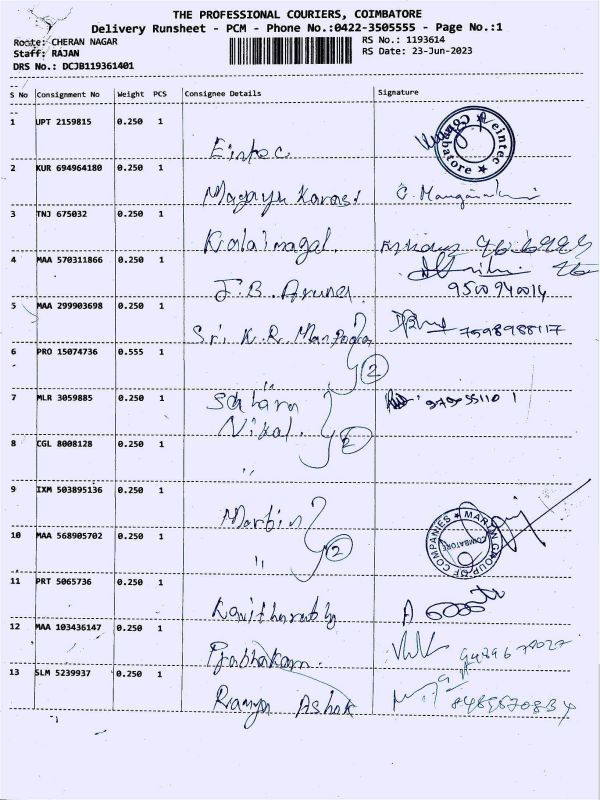 THE PROFESSIONAL COURIERS, COIMBATORE
Delivery Runsheet - PCM - Phone No.:0422-3505555 - Page No.:1
Route: CHERAN NAGAR
RS No.: 1193614
Staff: RAJAN
RS Date: 23-Jun-2023
DRS No.: DCJB119361401
S No Consignment No Weight PCS Consignee Details Signature
1 UPT 2159815 0.250 1
Eintec
2 KUR 694964180 0.250 1
3 TNJ 675032 0.250 1
Kalaimagal.
4 MAA 570311866 0.250 1
J.B. Aruner
9500940014
5 MAA 299903698 0.250 1
Sri K.R.
7598988117
6 PRO 15074736 0.555 1
2
7 MLR 3059885 0.250 1
Sahara
Nikal.
2
8 CGL 8008128 0.250 1
"
9 IXM 503895136 0.250 1
Martin
MARTIN GROUP OF COMPANIES
COIMBATORE
10 MAA 568905702 0.250 1
"
2
11 PRT 5065736 0.250 1
12 MAA 103436147 0.250 1
Prabhakaran.
13 SLM 5239937 0.250 1
Ramya Ashok